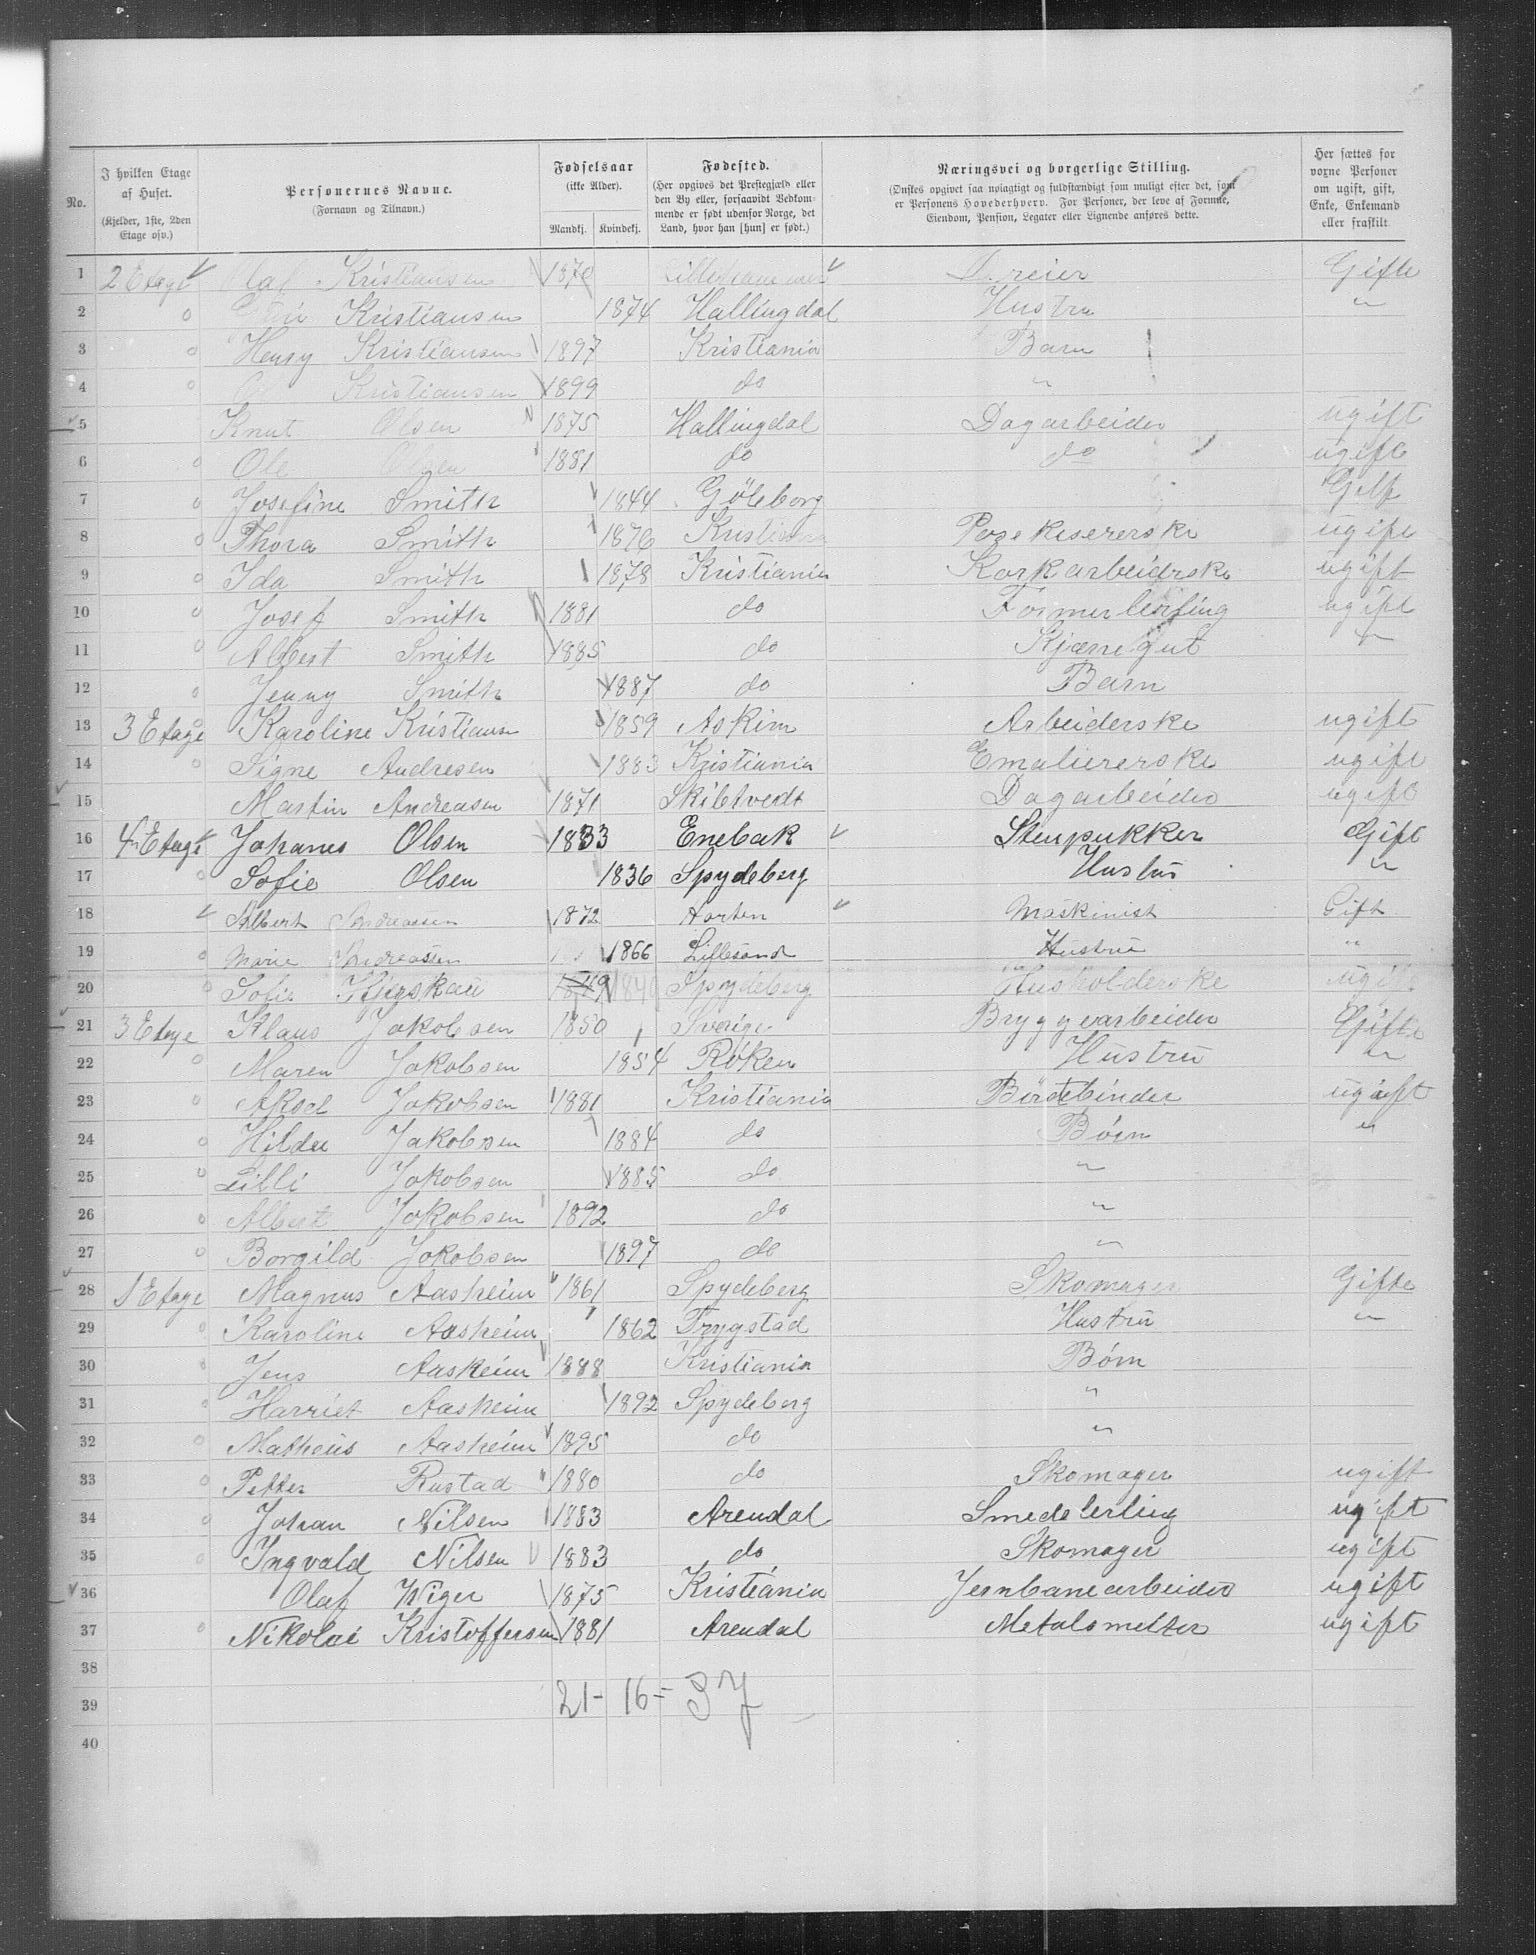 No.
I hvilken Etage af Huset. (Kjelder, 1ste, 2den Etage osv.)
Personernes Navne. (Fornavn og Tilnavn.)
Fødselsaar (ikke Alder). Mandkj. Kvindekj.
Fødested. (Her opgives det Prestegjæld eller den By eller, forsaavidt Vedkommende er født udenfor Norge, det Land, hvor han [hun] er født.)
Næringsvei og borgerlige Stilling. (Ønskes opgivet saa nøiagtigt og fuldstændigt som muligt efter det, som er Personens Hovederhverv. For Personer, der leve af Formue, Eiendom, Pension, Legater eller Lignende anføres dette.)
Her sættes for voxne Personer om ugift, gift, Enke, Enkemand eller fraskilt
1 2 Etage Kristiansen Dreier Gifte
2 Kristiansen 1874 Hallingdal Hustru "
3 Henry Kristiansen 1897 Kristiania Barn
4 Kristiansen 1899 do "
5 Knut Olsen 1875 Hallingdal Dagarbeider ugift
6 Ole Olsen 1881 do do ugift
7 Josefine Smith 1844 Gøteborg Gift
8 Thora Smith 1876 Kristiania ugift
9 Ida Smith 1878 Kristiania Korkarbeiderske ugift
10 Josef Smith 1881 do ugift
11 Albert Smith 1885 do "
12 Jenny Smith 1887 do Barn
13 3 Etage Karoline Kristiansen 1859 Askim Arbeiderske ugift
14 Signe Andresen 1883 Kristiania Emaliererske ugift
15 Martin Andreasen 1871 Skibtvedt Dagarbeider ugift
16 4 Etage Johanes Olsen 1833 Enebak Stenpukker Gift
17 Sofie Olsen 1836 Spydeberg Hustru "
18 Albert Andreassen 1872 Horten Maskinist Gift
19 Marie Andreassen 1866 Lillesand Hustru "
20 Sofie 1849 Spydeberg Husholderske ugift
21 3 Etage Klaus Jakobsen 1850 Sverige Bryggearbeider Gifte
22 Maren Jakobsen 1854 Røken Hustru "
23 Aksel Jakobsen 1881 Kristiania Børstebinder ugift
24 Hilda Jakobsen 1884 do Børn "
25 Lilli Jakobsen 1885 do "
26 Albert Jakobsen 1892 do "
27 Borgild Jakobsen 1897 do "
28 1 Etage Magnus Aasheim 1861 Spydeberg Skomager Gifte
29 Karoline Aasheim 1862 Trygstad Hustru "
30 Jens Aasheim 1888 Kristiania Børn
31 Harriet Aasheim 1892 Spydeberg "
32 Matheus Aasheim 1895 do "
33 Petter Rustad 1880 do Skomager ugift
34 Johan Nilsen 1883 Arendal Smedelerling ugift
35 Ingvald Nilsen 1883 do Skomager ugift
36 Olaf Wiger 1875 Kristiania Jernbanearbeider ugift
37 Nikolai Kristoffersen 1881 Arendal Metalsmelter ugift
38
39 21 - 16 = 37
40